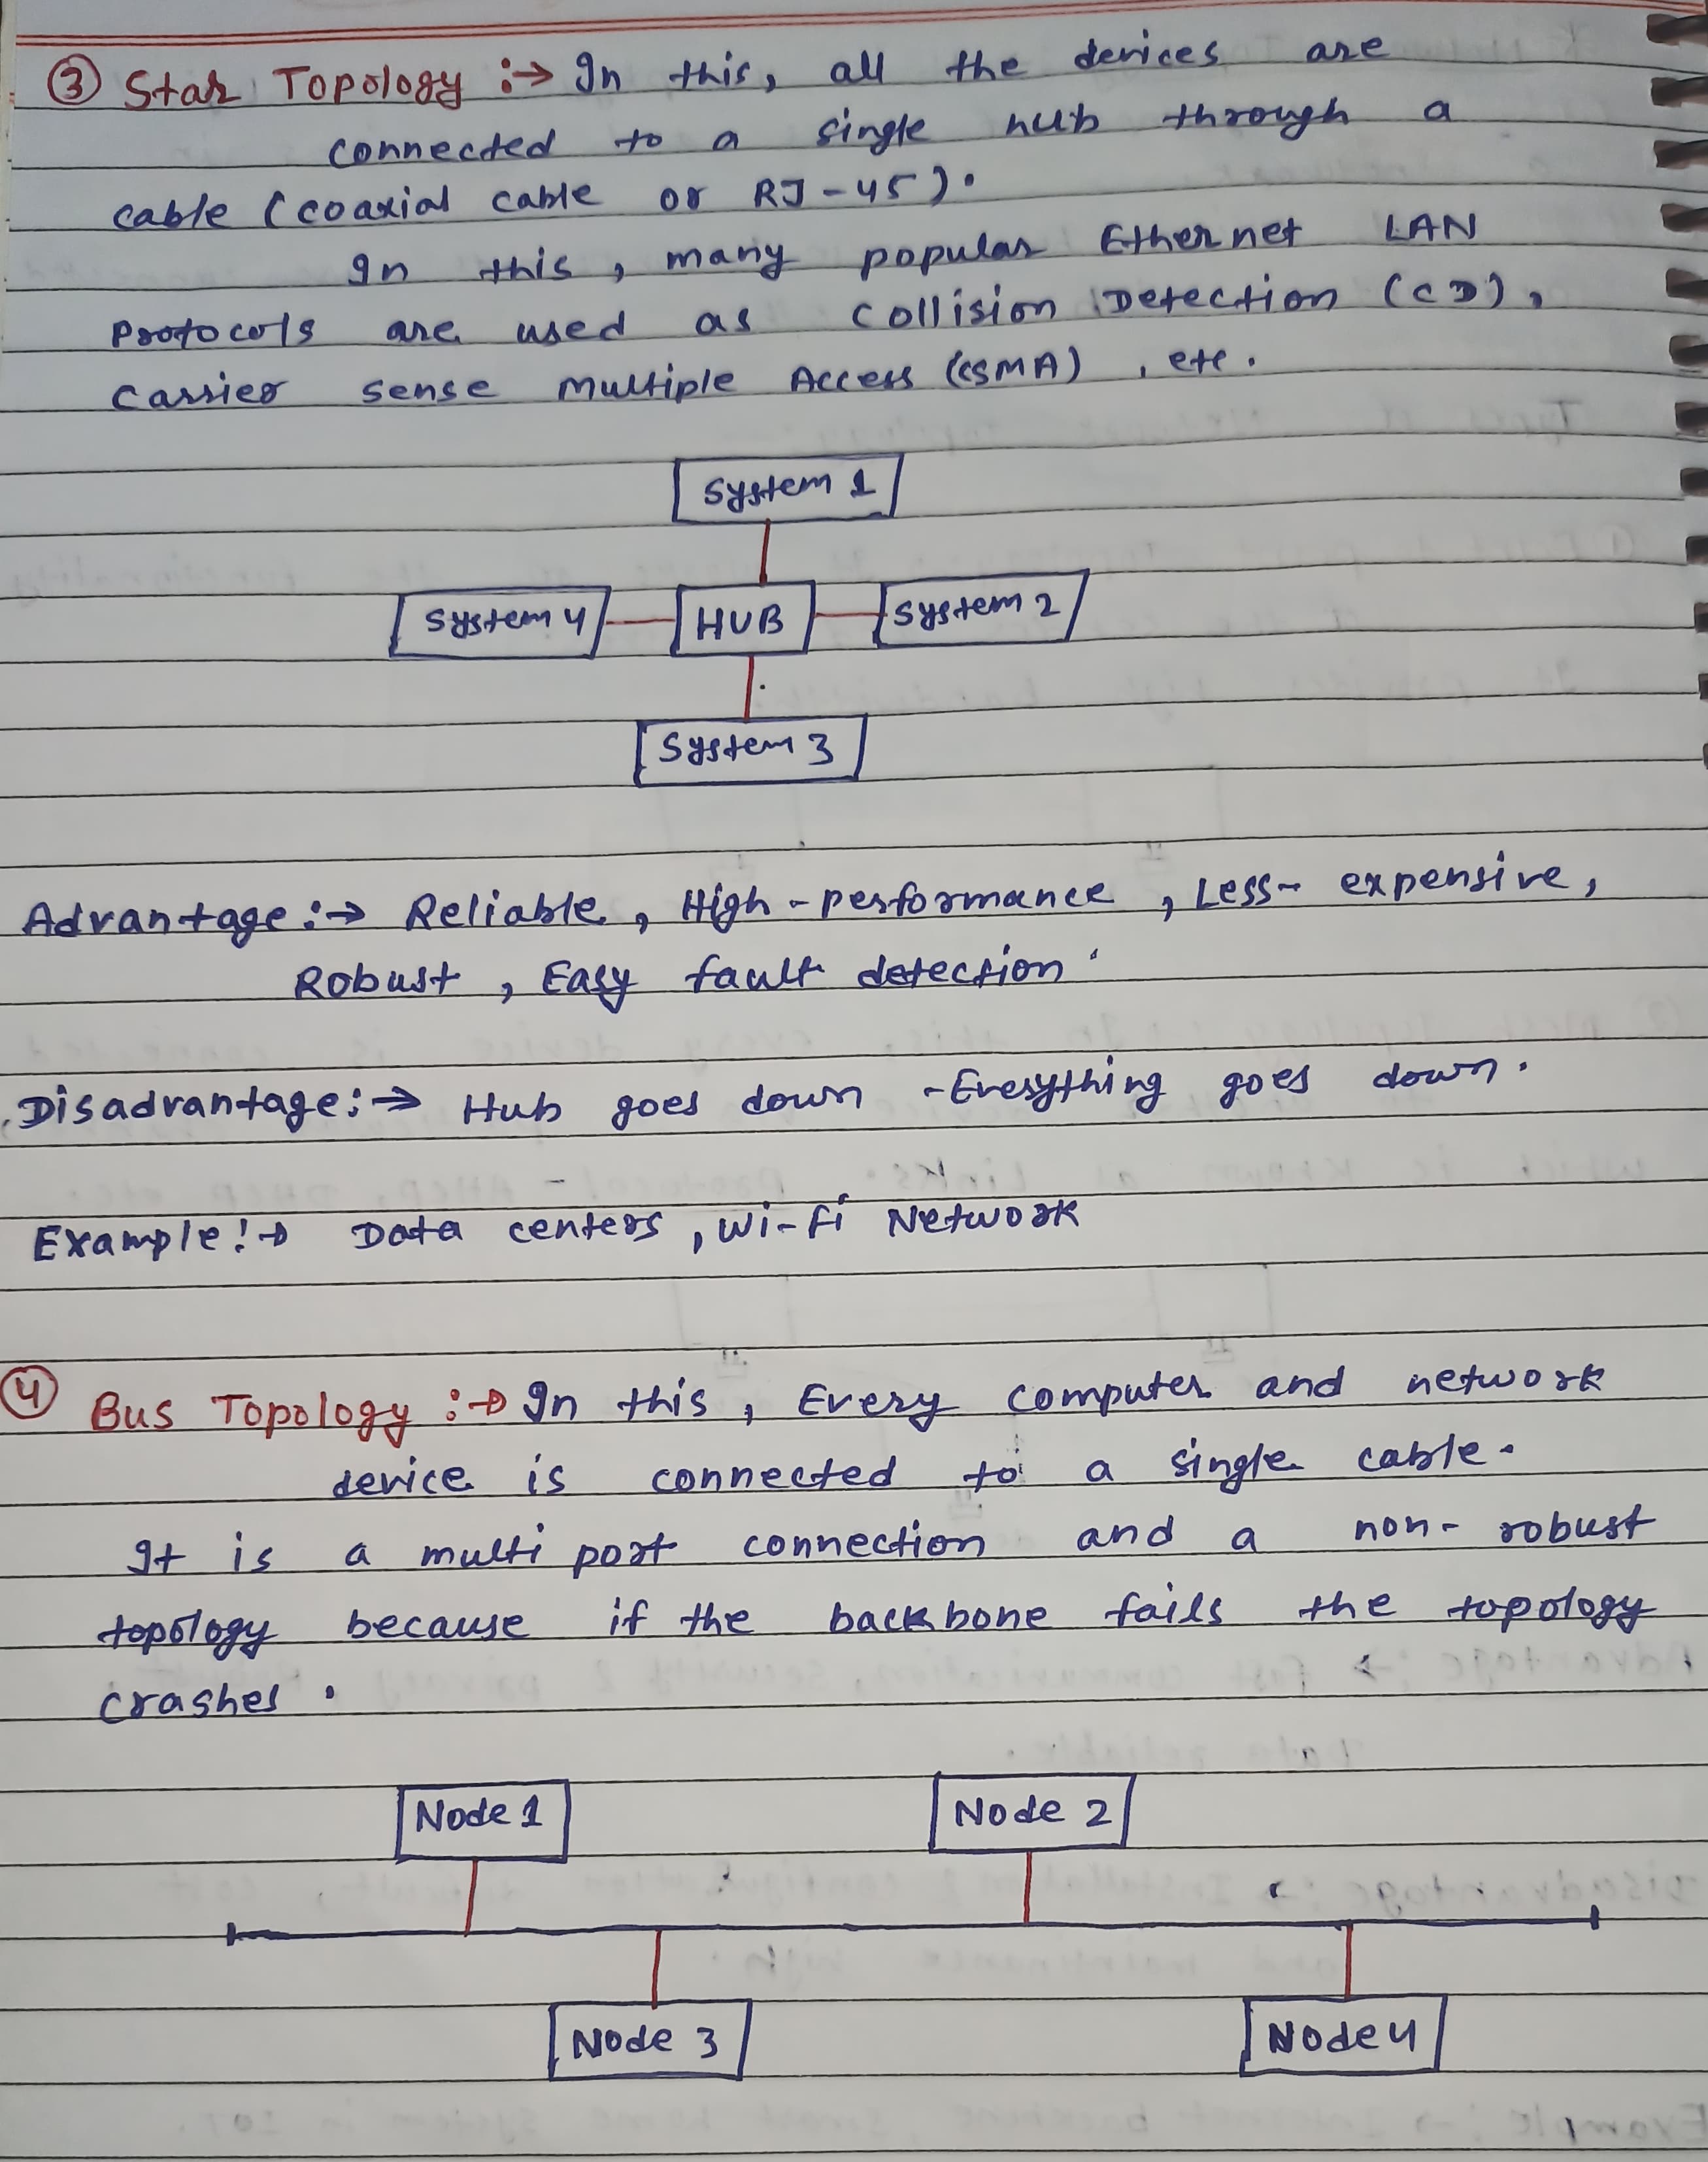 ③ Star Topology :→ In this, all the devices are
connected to a single hub through a
cable (coaxial cable or RJ-45).
In this, many popular Ethernet LAN
protocols are used as Collision Detection (CD),
Carrier sense Multiple Access (CSMA), etc.
System 1
System 4 HUB System 2
System 3
Advantage :→ Reliable, High-performance, Less-expensive,
Robust, Easy fault detection.
Disadvantage :→ Hub goes down - Everything goes down.
Example :→ Data centers, Wi-Fi Network
④ Bus Topology :→ In this, Every computer and network
device is connected to a single cable.
It is a multi port connection and a non-robust
topology because if the backbone fails the topology
crashes.
Node 1 Node 2
Node 3 Node 4